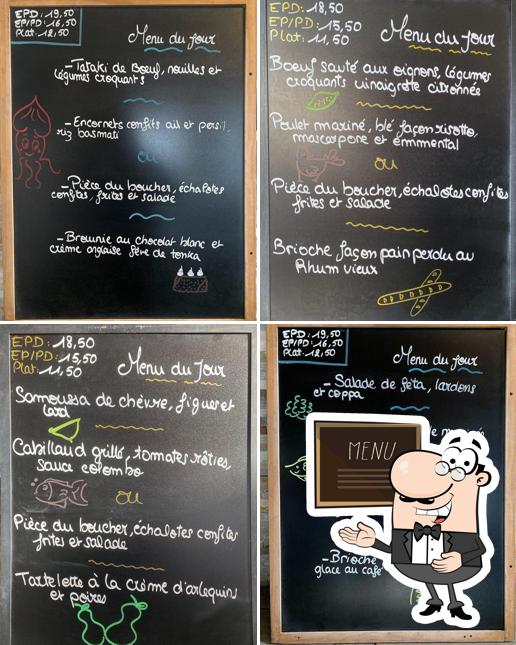 EPD: 19,50
EP/PD: 16,50
Plat: 12,50
Menu du jour
-Tataki de Boeuf, nouilles et
légumes croquants
-Encornets confits ail et persil,
riz basmati
ou
-Pièce du boucher, échalotes
confites, frites et salade
-Brownie au chocolat blanc et
crème anglaise fève de tonka
EPD: 18,50
EP/PD: 15,50
Plat: 11,50
Menu du Jour
Boeuf sauté aux oignons, légumes
croquants vinaigrette citronnée
Poulet mariné, blé façon risotto,
mascarpone et emmental
ou
Pièce du boucher, échalotes confites
frites et salade
Brioche façon pain perdu au
Rhum vieux
EPD: 18,50
EP/PD: 15,50
Plat: 11,50
Menu du Jour
Samoussa de chèvre, figues et
lard
Cabillaud grillé, tomates rôties,
sauce colombo
ou
Pièce du boucher, échalotes confites
frites et salade
Tartelette à la crème d'arlequins
et poires
EPD: 19,50
EP/PD: 16,50
Plat: 12,50
Menu du jour
- Salade de féta, lardons
et coppa
MENU
-Brioche
glace au café